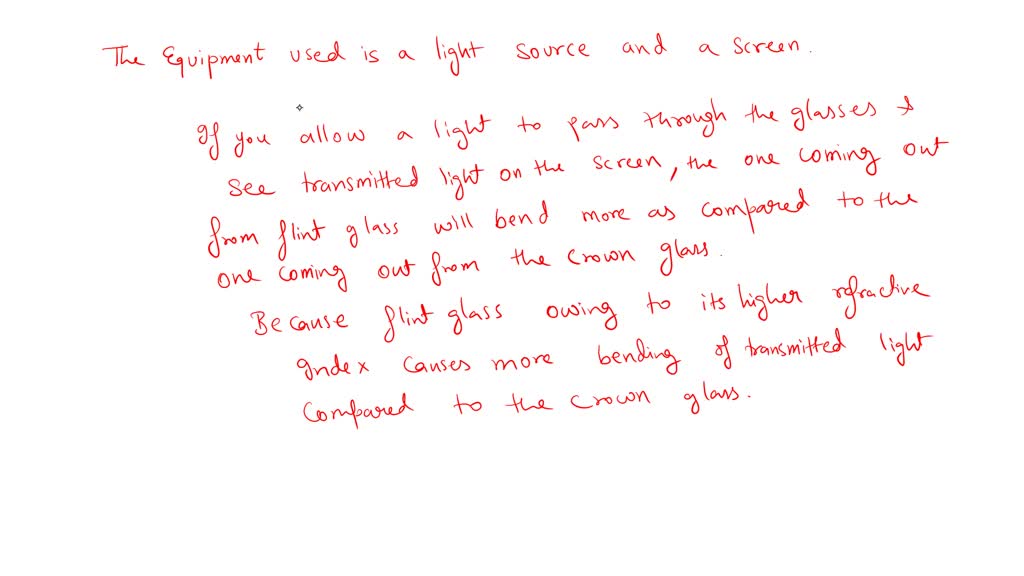 The Equipment used is a light source and a screen.
If you allow a light to pass through the glasses &
see transmitted light on the screen, the one coming out
from flint glass will bend more as compared to the
one coming out from the crown glass.
Because flint glass owing to its higher refractive
Index causes more bending of transmitted light
compared to the crown glass.